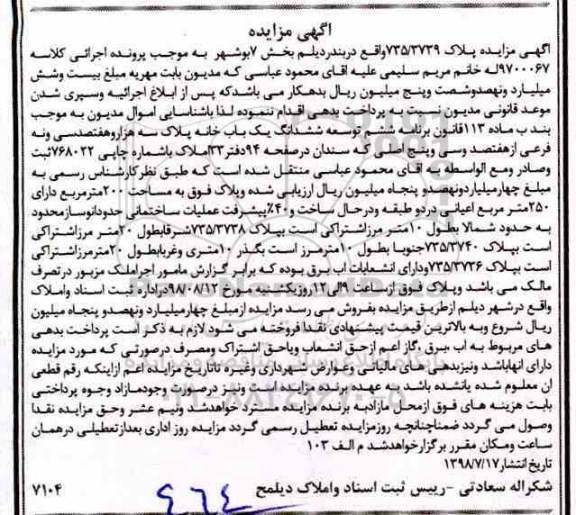 آگهی مزایده
آگهی مزایده پلاک ۷۳۵/۳۷۳۹واقع دربندردیلم بخش ۷بوشهر به موجب پرونده اجرائی کلاسه
۹۷۰۰۰۶۷له خانم مریم سلیمی علیه اقای محمود عباسی که مدیون بابت مهریه مبلغ بیست وشش
میلیارد ونهصدوشصت وپنج میلیون ریال بدهکار می باشدکه پس از ابلاغ اجرائیه وسپری شدن
موعد قانونی مدیون نسبت به پرداخت بدهی اقدام ننموده لذا باشناسایی اموال مدیون به موجب
بند ب ماده ۱۱۳قانون برنامه ششم توسعه ششدانگ یک باب خانه پلاک سه هزاروهفتصدسی ونه
فرعی ازهفتصد وسی وپنج اصلی که سندان درصفحه ۹۴دفتر۳۳املاک باشماره چاپی ۷۶۸۰۲۲ثبت
وصادر ومع الواسطه به اقای محمود عباسی منتقل شده است که طبق نظرکارشناس رسمی به
مبلغ چهارمیلیاردونهصدو پنجاه میلیون ریال ارزیابی شده وپلاک فوق به مساحت ۲۰۰مترمربع دارای
۲۵۰متر مربع اعیانی دردو طبقه ودرحال ساخت و۴۰٪پیشرفت عملیات ساختمانی حدودانوسازمحدود
به حدود شمالا بطول ۱۰متر مرزاشتراکی است بپلاک ۷۳۵/۳۷۳۸شرقابطول ۲۰متر مرزاشتراکی
است بپلاک ۷۳۵/۳۷۴۰جنوبا بطول ۱۰مترمرز است بگذر ۱۰متری وغربابطول ۲۰مترمرزاشتراکی
است بپلاک ۷۳۵/۳۷۳۶ودارای انشعابات اب برق بوده که برابر گزارش مامور اجراملک مزبور درتصرف
مالک می باشد وپلاک فوق ازساعت ۹الی۱۲روزیکشنبه مورخ ۹۸/۰۸/۱۲دراداره ثبت اسناد واملاک
واقع درشهر دیلم ازطریق مزایده بفروش می رسد مزایده ازمبلغ چهارمیلیارد ونهصدو پنجاه میلیون
ریال شروع وبه بالاترین قیمت پیشنهادی نقدا فروخته می شود لازم به ذکر است پرداخت بدهی
های مربوط به اب برق ،گاز اعم ازحق انشعاب ویاحق اشتراک ومصرف درصورتی که مورد مزایده
دارای انهاباشد ونیزبدهی های مالیاتی وعوارض شهرداری وغیره تاتاریخ مزایده اعم ازاینکه رقم قطعی
ان معلوم شده یانشده باشد به عهده برنده مزایده است ونیز درصورت وجودمازاد وجوه پرداختی
بابت هزینه های فوق ازمحل مازادبه برنده مزایده مسترد خواهدشد ونیم عشر وحق مزایده نقدا
وصول می گردد ضمناچنانچه روزمزایده تعطیل رسمی گردد مزایده روز اداری بعدازتعطیلی درهمان
ساعت ومکان مقرر برگزارخواهدشد م الف ۱۰۳
تاریخ انتشار۱۳۹۸/۷/۱۷
شکراله سعادتی -رییس ثبت اسناد واملاک دیلمح
۷۱۰۴
۴۶۴